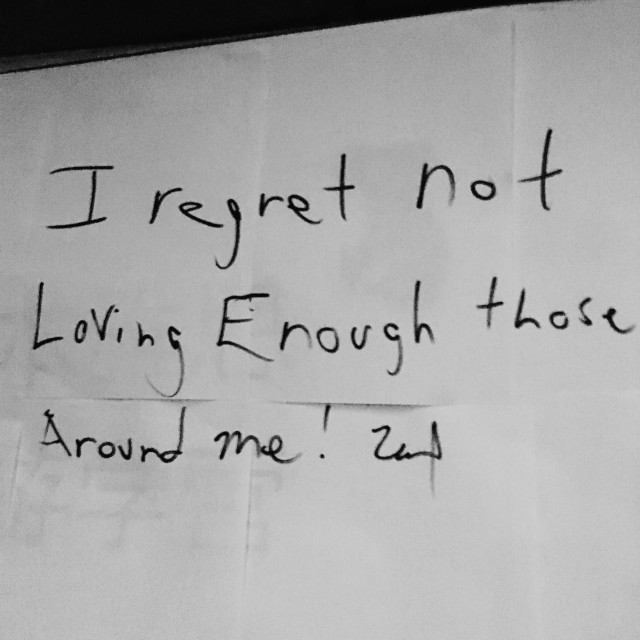 I regret not
Loving Enough those
Around me!